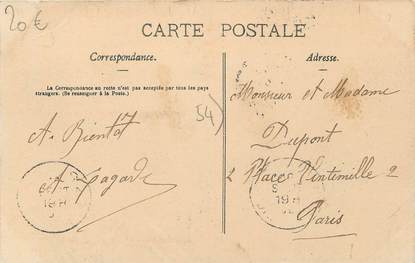 20€
CARTE POSTALE
Correspondance.
La Correspondance au recto n'est pas acceptée par tous les pays
étrangers. (Se renseigner à la Poste.)
54)
A Bientôt
Adresse.
Monsieur et Madame
Dupont
2 Place Vintimille 2
Paris